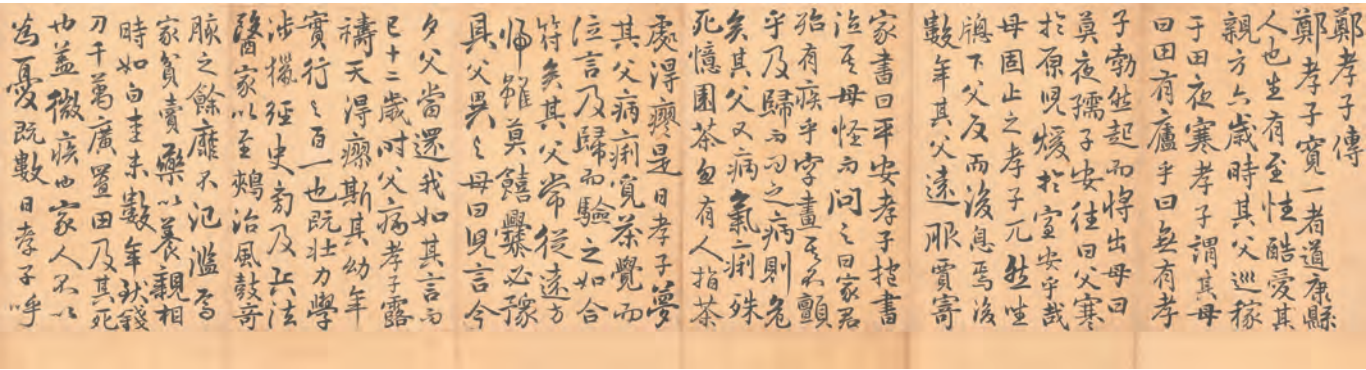 鄭孝子傳
鄭孝子寬一者道康縣
人也生有至性酷愛其
親方六歲時其父巡稼
于田夜寒孝子謂其母
曰田有廬乎曰無有孝
子勃然起而將出母曰
莫夜孺子安往曰父寒
於原兒煖於室安乎哉
母固止之孝子兀然坐
牕下父反而後息焉後
數年其父遠服賈寄
家書曰平安孝子抱書
泣其母怪而問之曰家君
殆有疾乎字畫其有顫
乎及歸而叩之病則危
矣其父又病氣痢殊
死憶園茶忽有人指茶
處得瘳是日孝子夢
其父病痢覓茶覺而
泣言及歸而驗之如合
符矣其父常從遠方
歸雖莫饎爨必豫
具父異之母曰兒言今
夕父當還我如其言而
已十二歲時父病孝子露
禱天得瘳斯其幼年
實行之百一也既壯力學
涉獵經史旁及兵法
醫家以至鶴治風鼓奇
胲之餘靡不氾濫焉
家貧賣藥以養親相
時如白圭未數年致錢
刀千萬廣置田及其死
也蓋微疾也家人不以
為憂既數日孝子呼